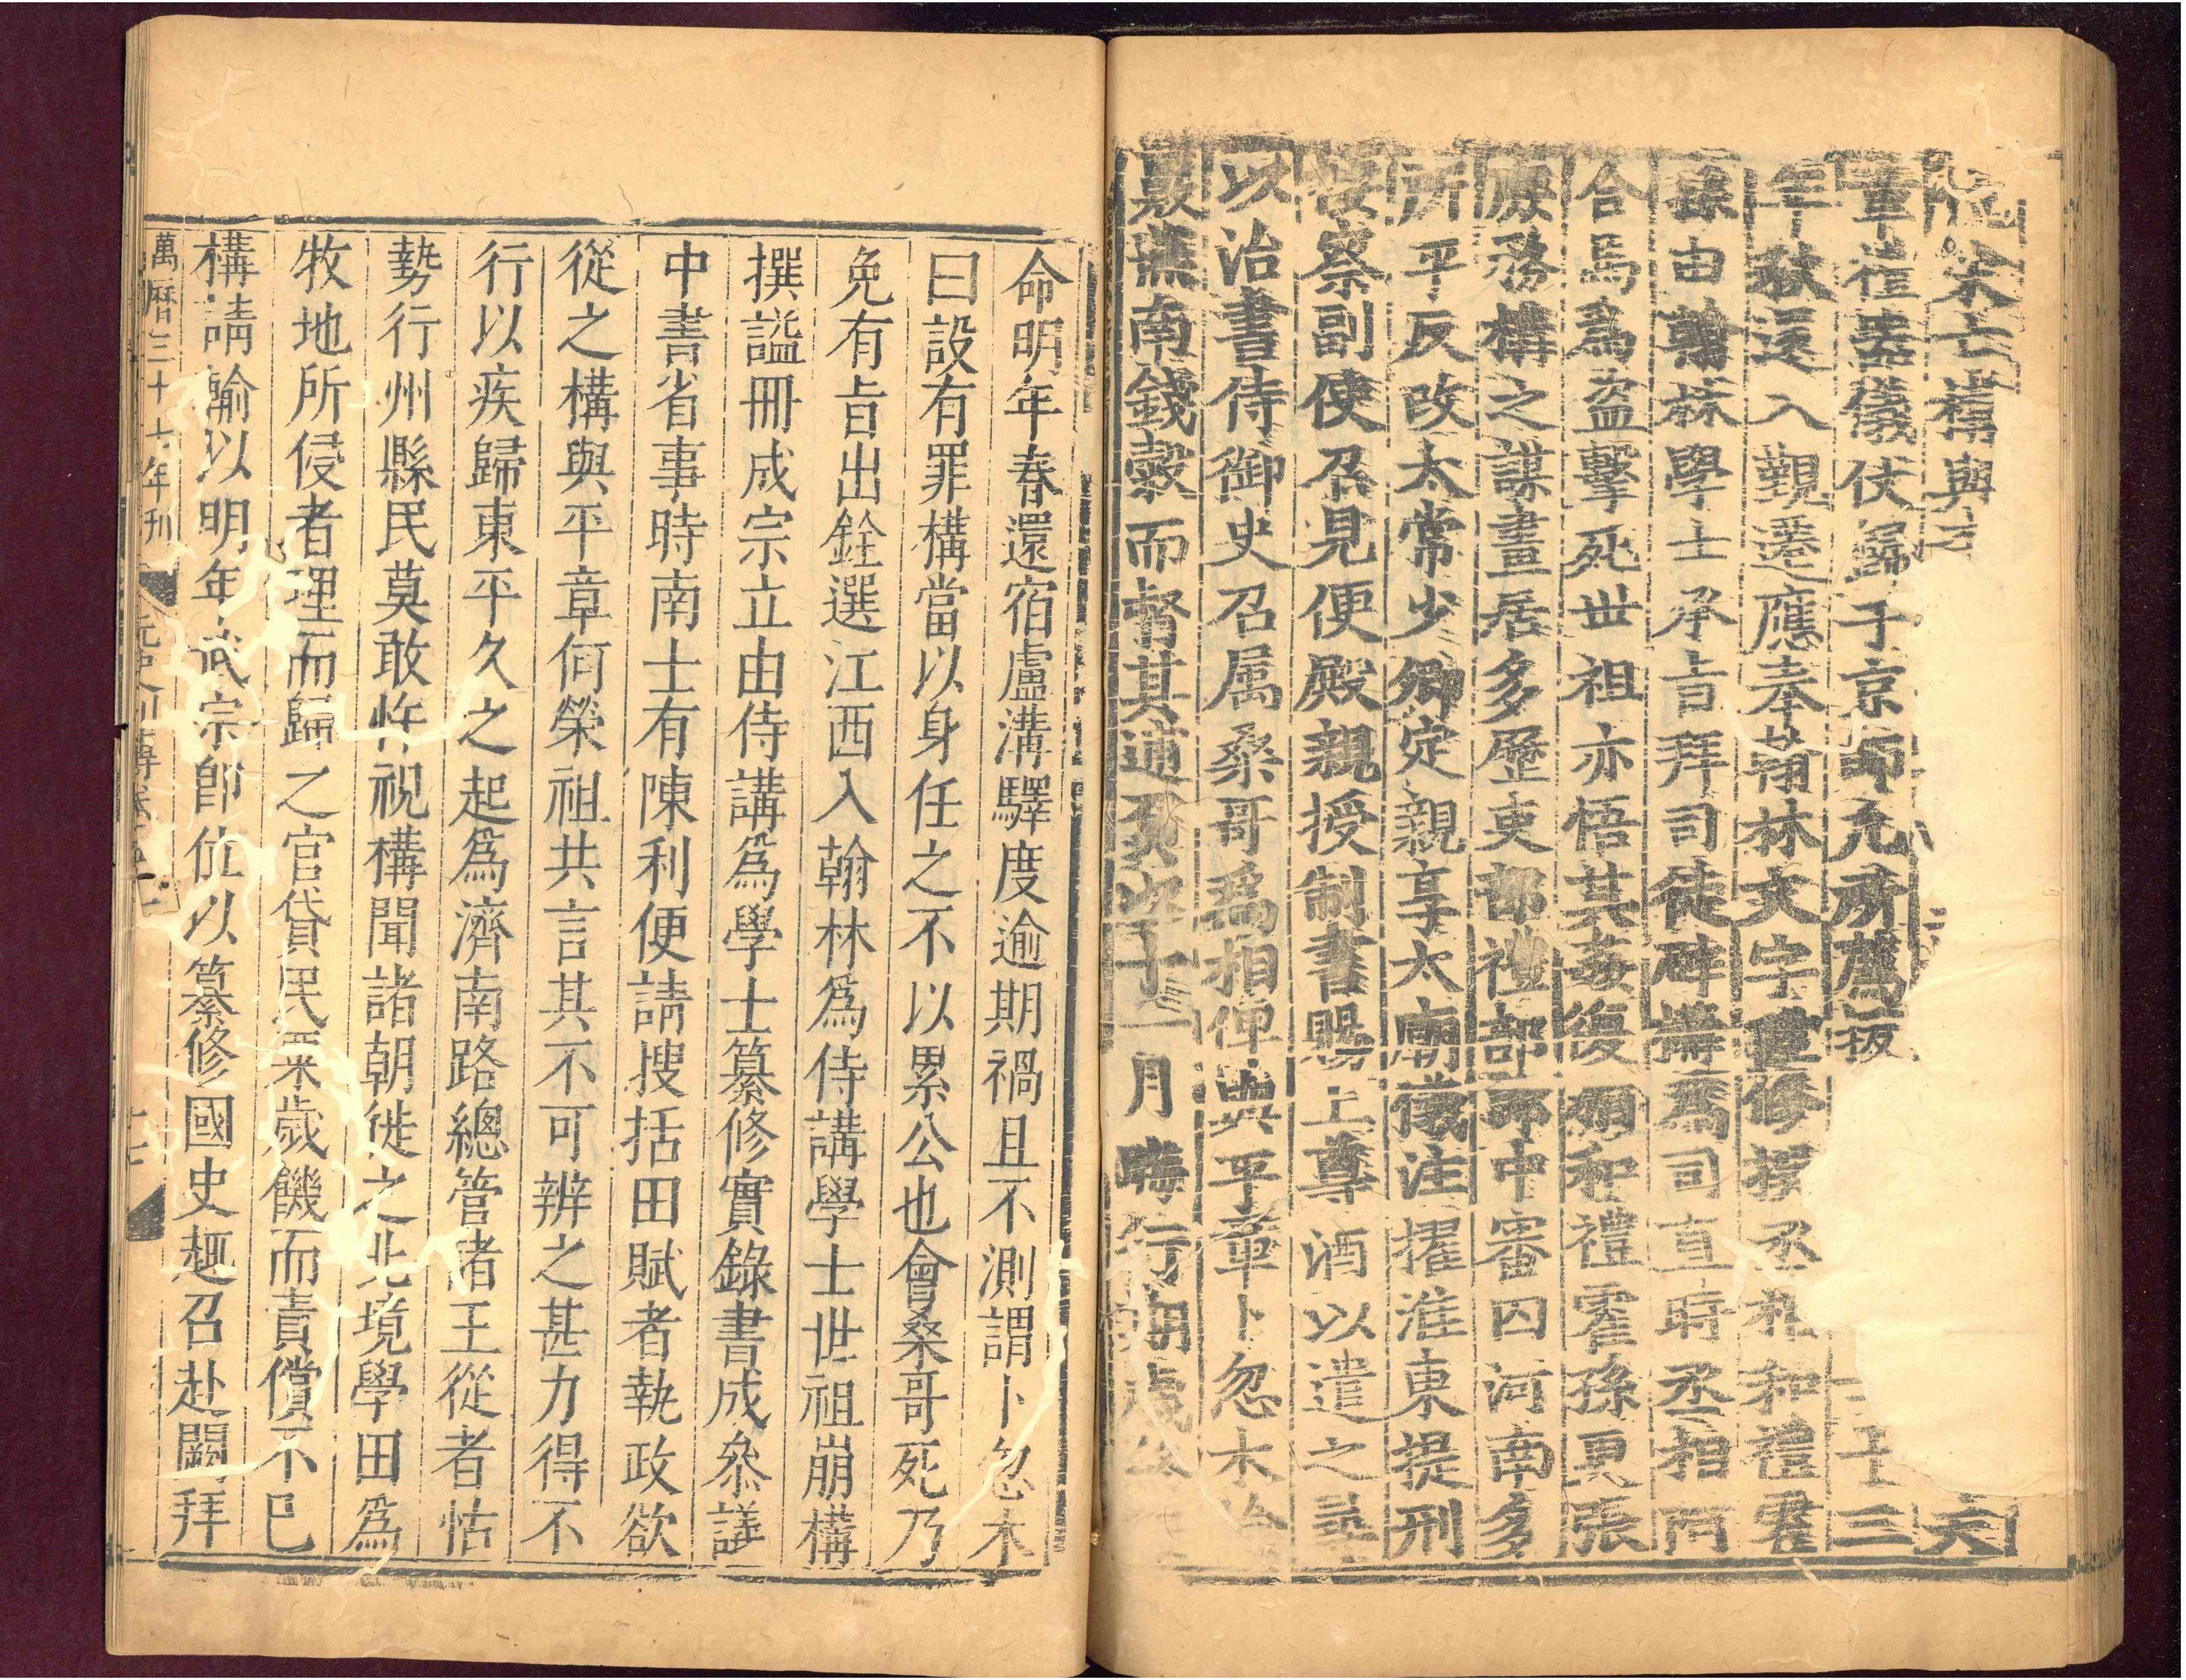 宋亡構與
天
章禮器儀仗歸于京師凡所薦拔
十三
年秋還入覲遷應奉翰林文字陞修撰丞相和禮霍
孫由翰林學士承旨拜司徒辟構爲司直時丞相阿
合馬爲盜擊死世祖亦悟其姦復相和禮霍孫更張
庶務構之謀畫居多歷吏部禮部郎中審囚河南多
所平反改太常少卿定親享太廟儀注擢淮東提刑
按察副使召見便殿親授制書賜上尊酒以遣之尋
以治書侍御史召属桑哥爲相俾與平章卜忽木檢
覈燕南錢穀而督其逋負十一月晦行期歲終
命明年春還宿盧溝驛度逾期禍且不測謂卜忽木
曰設有罪構當以身任之不以累公也會桑哥死乃
免有旨出銓選江西入翰林爲侍講學士世祖崩構
撰謚冊成宗立由侍講爲學士纂修實錄書成叅議
中書省事時南士有陳利便請搜括田賦者執政欲
從之構與平章何榮祖共言其不可辨之甚力得不
行以疾歸東平久之起爲濟南路總管諸王從者怙
勢行州縣民莫敢忤視構聞諸朝徙之北境學田爲
牧地所侵者理而歸之官貸民粟歲饑而責償不已
構請輸以明年武宗即位以纂修國史趣召赴闕拜
萬曆三十七年刊 元史列傳卷五十一 十七